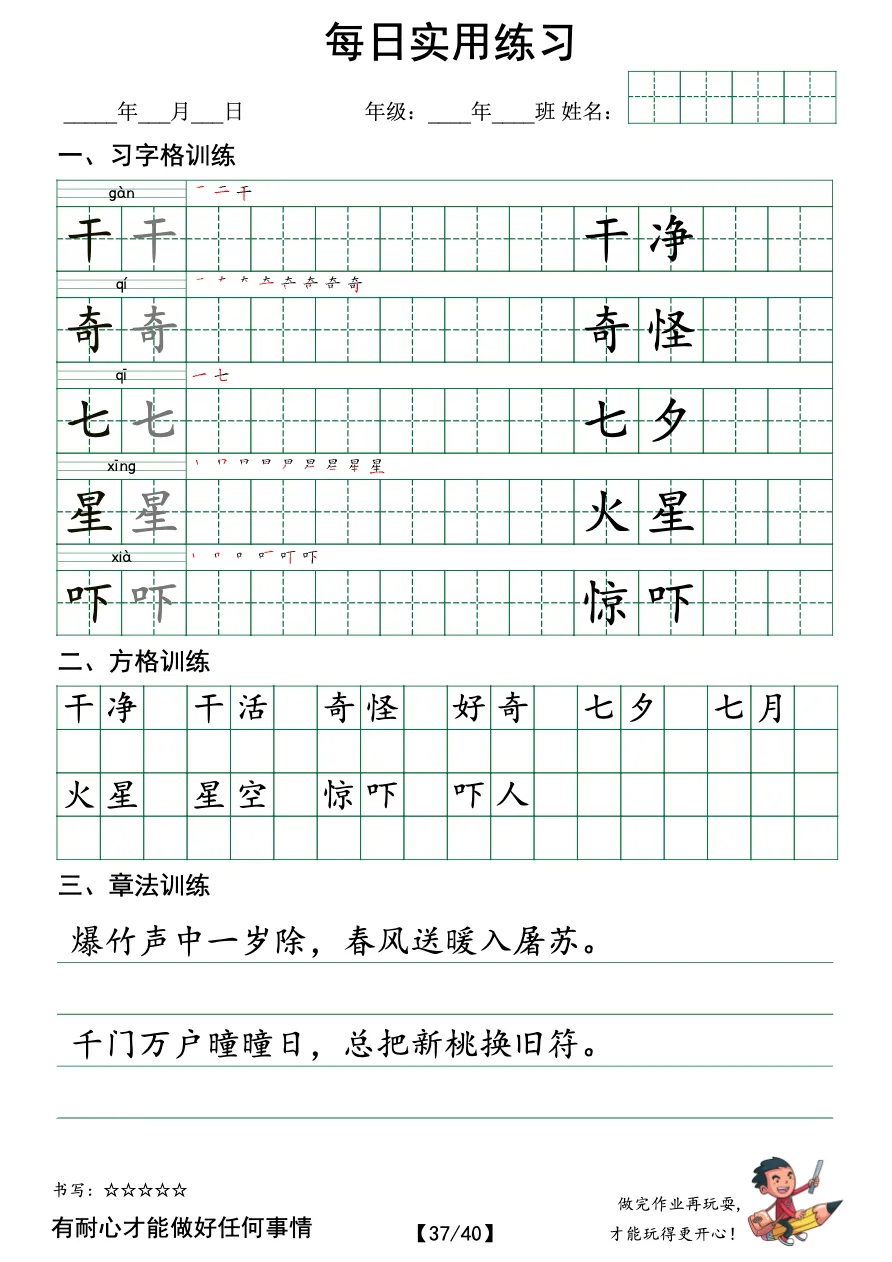 每日实用练习
_____年___月___日 年级：____年____班 姓名：
一、习字格训练
gàn 一 二 干
干 干 干 净
qí
奇 奇 奇 怪
qī 一 七
七 七 七 夕
xīng 丨 冂 日 日 星
星 星 火 星
xià 丨 冂 口 吓
吓 吓 惊 吓
二、方格训练
干净 干活 奇怪 好奇 七夕 七月
火星 星空 惊吓 吓人
三、章法训练
爆竹声中一岁除，春风送暖入屠苏。
千门万户曈曈日，总把新桃换旧符。
书写：☆☆☆☆☆
做完作业再玩耍，
有耐心才能做好任何事情 【37/40】 才能玩得更开心！